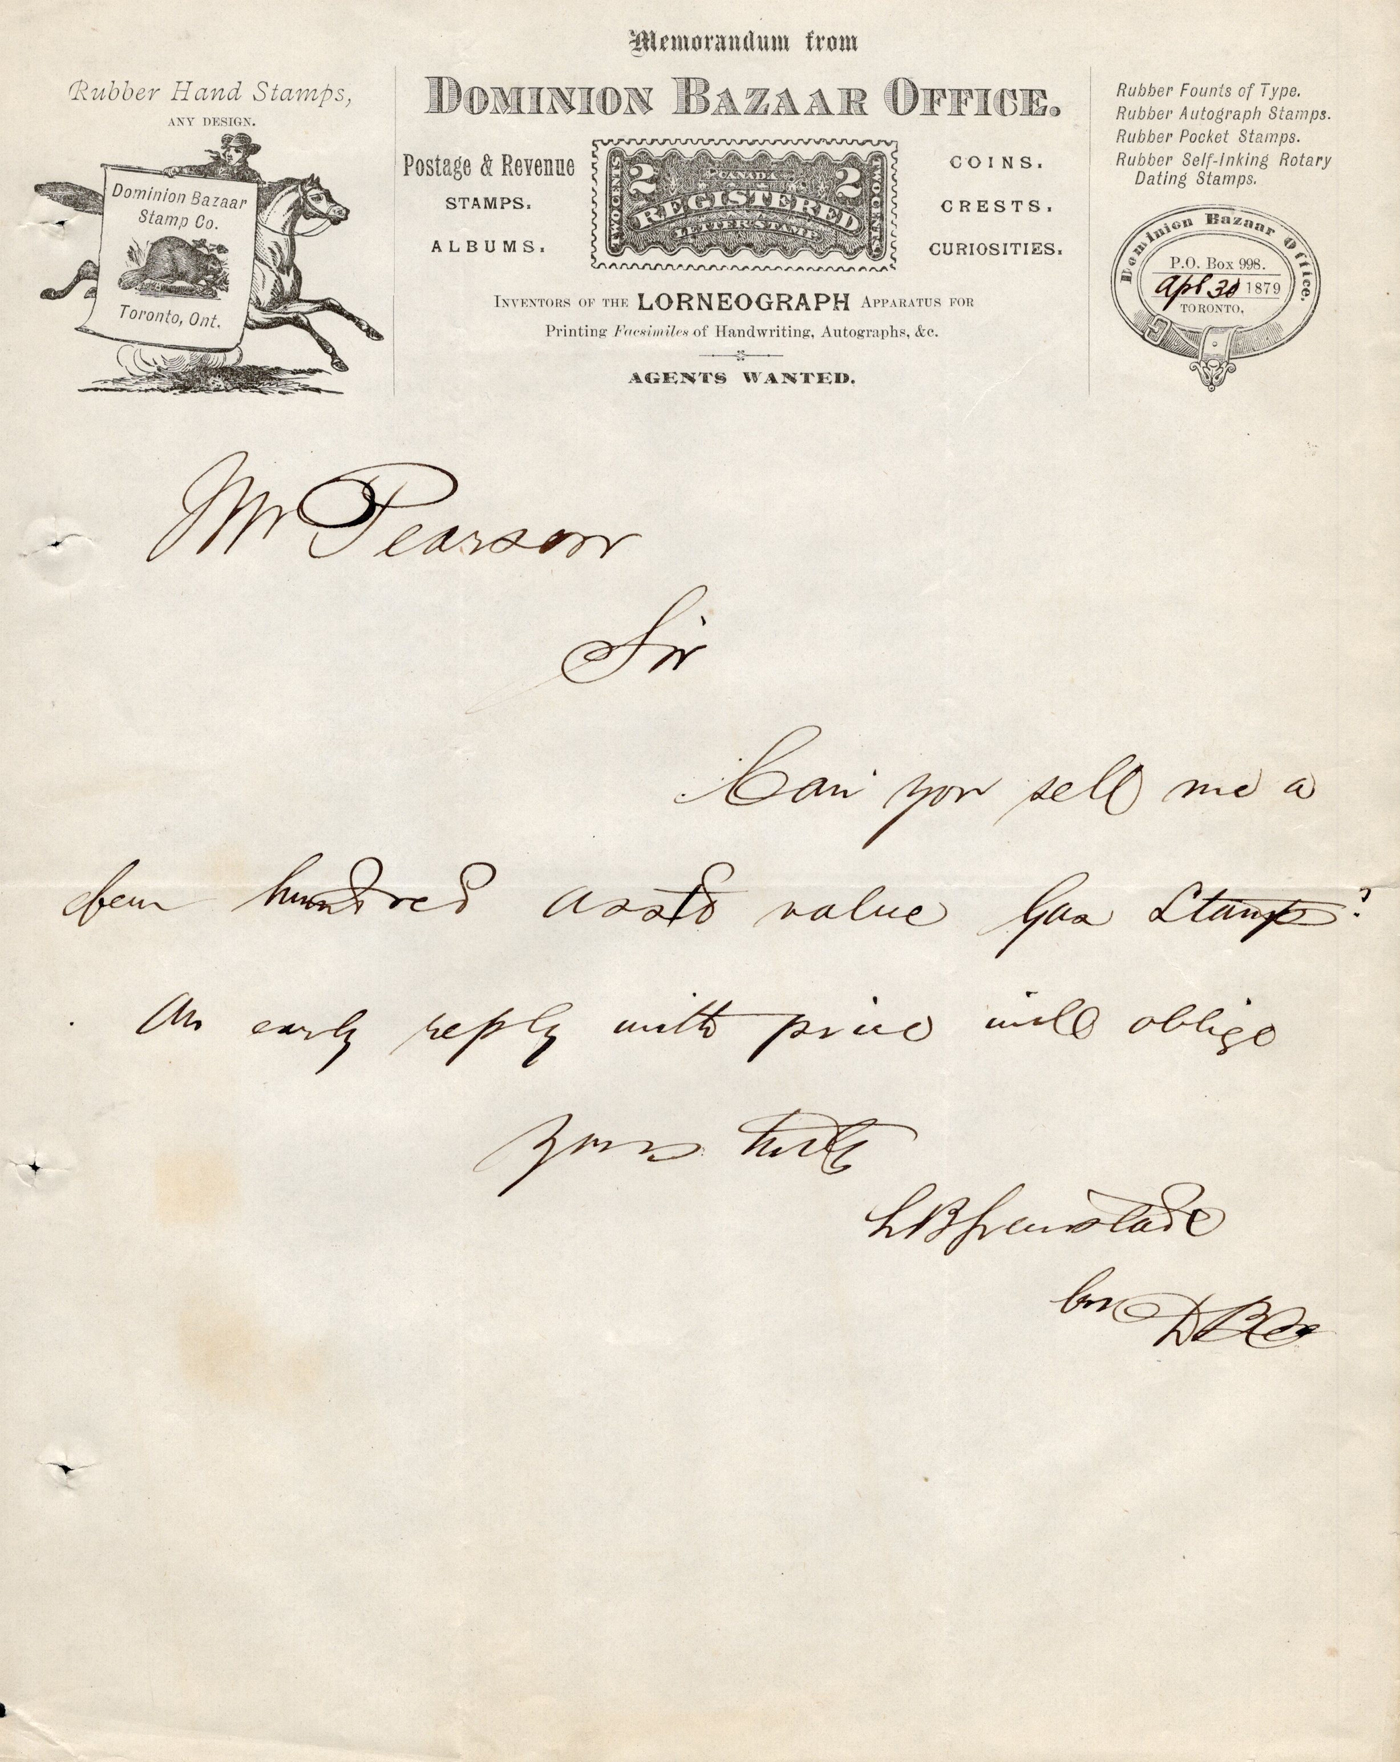 Memorandum from
DOMINION BAZAAR OFFICE.
Rubber Hand Stamps,
ANY DESIGN.
Dominion Bazaar
Stamp Co.
Toronto, Ont.
Postage & Revenue
STAMPS.
ALBUMS.
CANADA
2 2
TWO CENTS TWO CENTS
REGISTERED
LETTER STAMP
COINS.
CRESTS.
CURIOSITIES.
INVENTORS OF THE LORNEOGRAPH APPARATUS FOR
Printing Facsimiles of Handwriting, Autographs, &c.
AGENTS WANTED.
Rubber Founts of Type.
Rubber Autograph Stamps.
Rubber Pocket Stamps.
Rubber Self-Inking Rotary
Dating Stamps.
Dominion Bazaar Office.
P.O. Box 998.
Apl 30 1879
TORONTO,
Mr Pearson
Sir
Can you sell me a
few hundred asstd value Gas Stamps?
An early reply with price will oblige
Yours truly
DBO